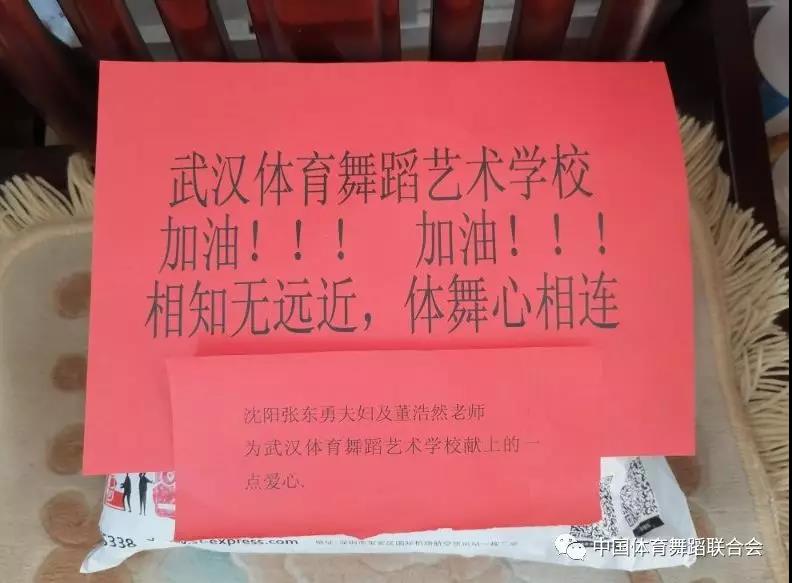 武汉体育舞蹈艺术学校
加油！！！ 加油！！！
相知无远近，体舞心相连
沈阳张东勇夫妇及董浩然老师
为武汉体育舞蹈艺术学校献上的一
点爱心.
5338
st-express.com
中国体育舞蹈联合会